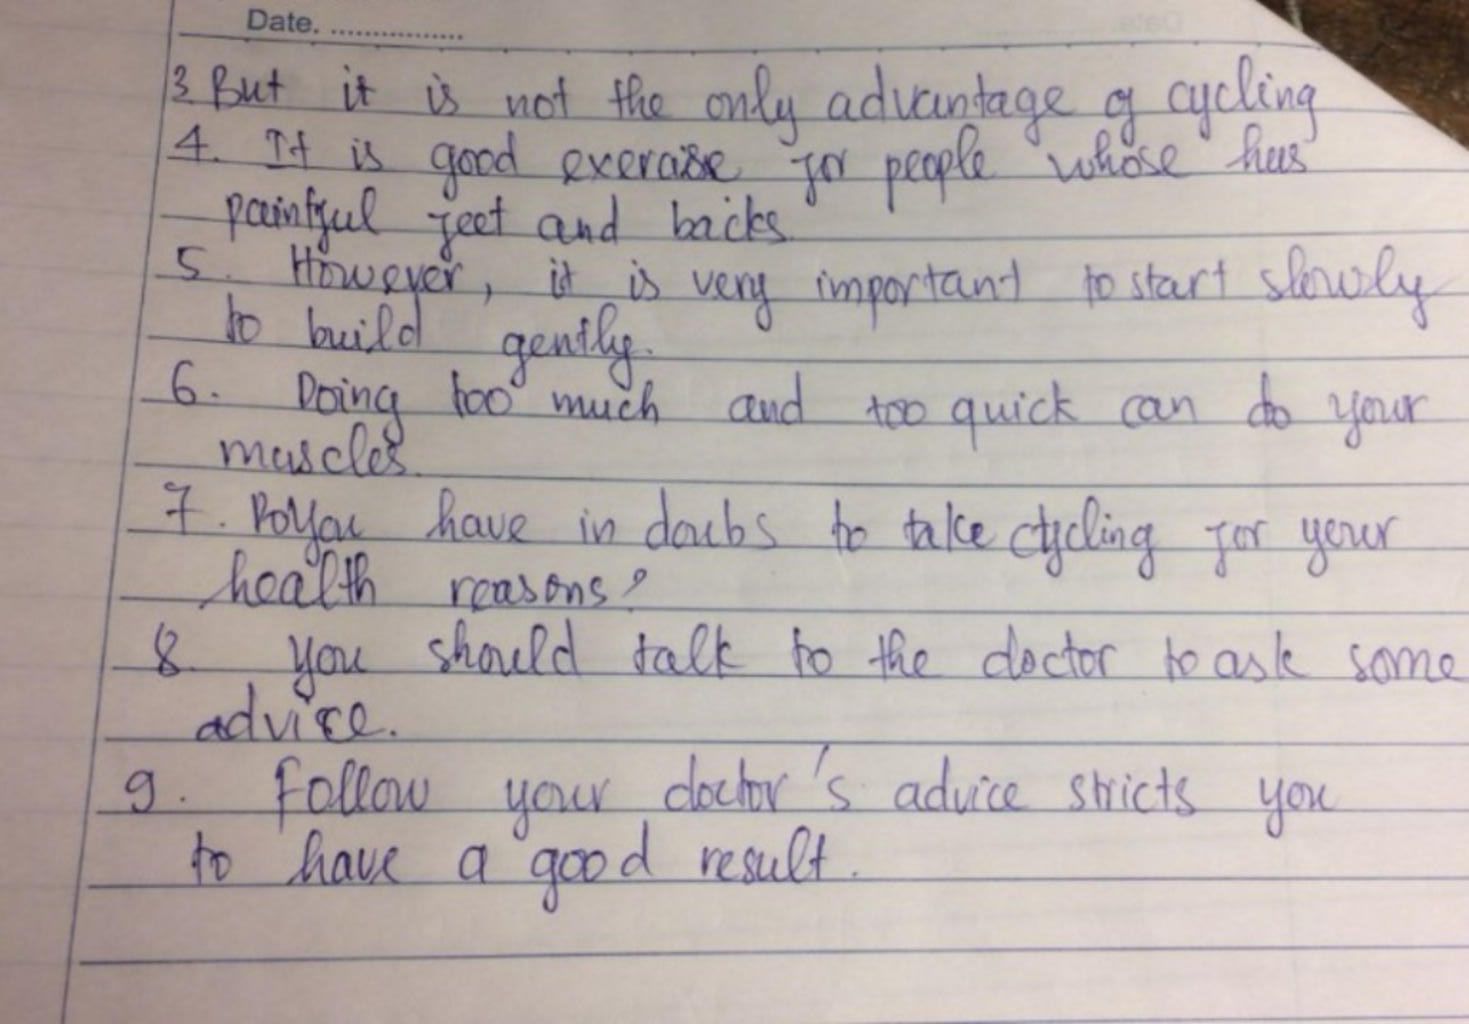 Date. ................
3 But it is not the only advantage of cycling
4. It is good exercise for people whose has
painful feet and backs.
5. However, it is very important to start slowly
to build gently.
6. Doing too much and too quick can do your
muscles.
7. Do you have in doubs to take cycling for your
health reasons?
8. You should talk to the doctor to ask some
advice.
9. Follow your doctor's advice stricts you
to have a good result.